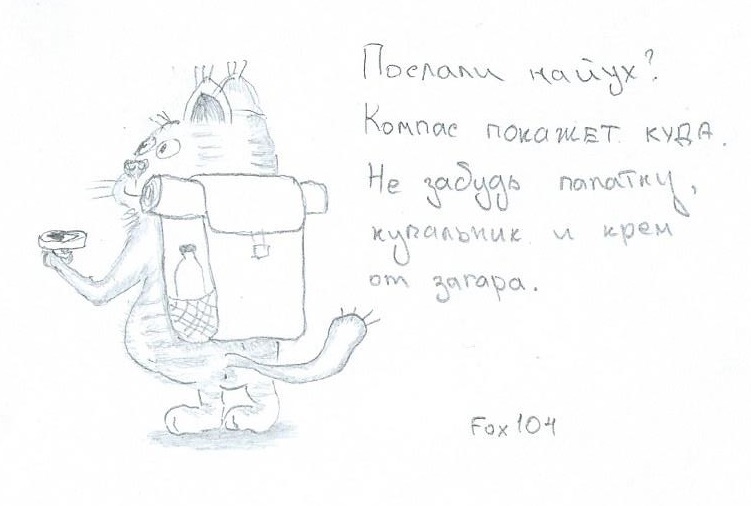 Послали найух?
Компас покажет куда.
Не забудь палатку,
купальник и крем
от загара.
Fox104